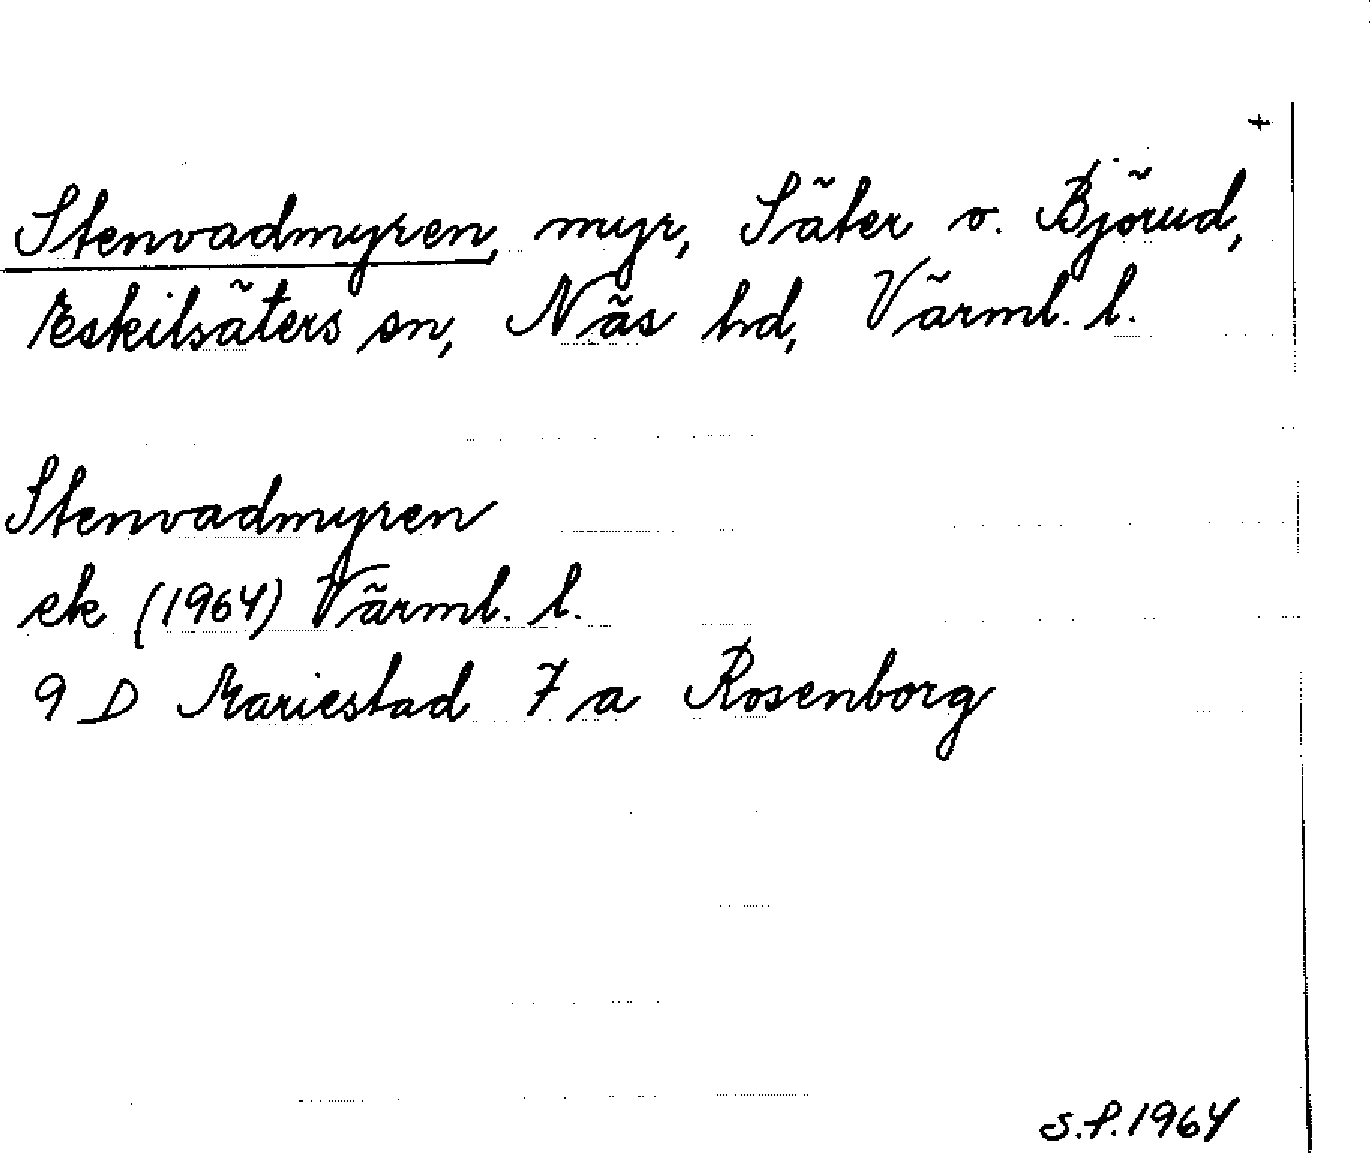 +
Stenvadmyren, myr, Säter o. Björud,
Eskilsäters sn, Näs hd, Värml. l.
Stenvadmyren
ek (1964) Värml. l.
9 D Mariestad 7 a Rosenborg
S.P. 1964